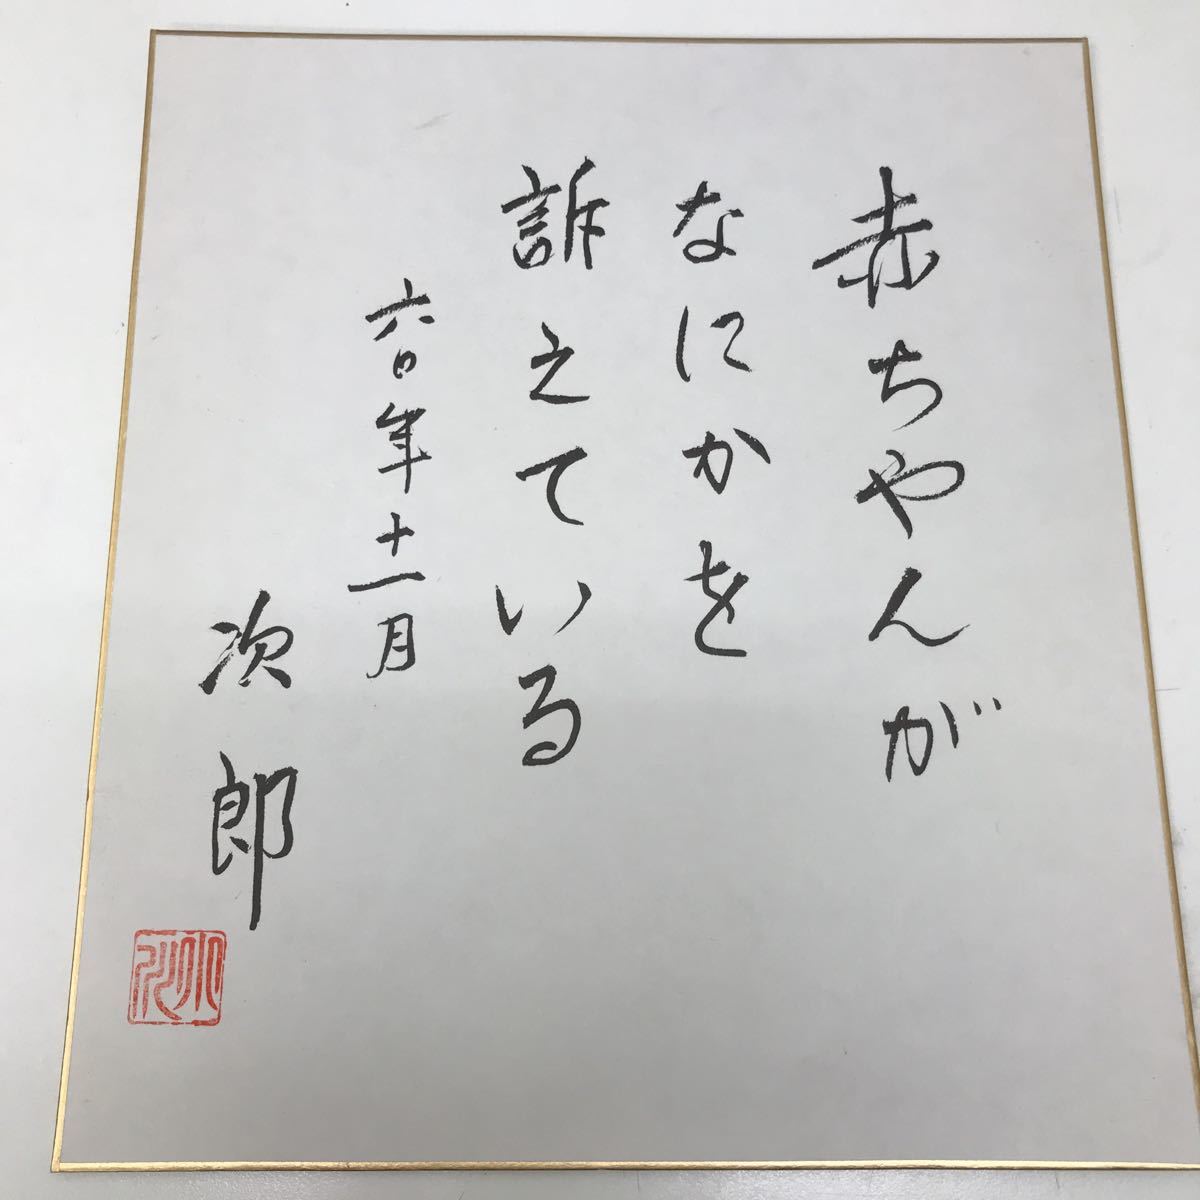 赤ちゃんが
なにかを
訴えている
六〇年十一月
次郎